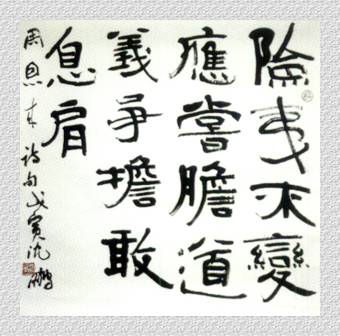 險夷不變
應嘗膽道
義爭擔敢
息肩
周恩来詩句戊寅沈鵬